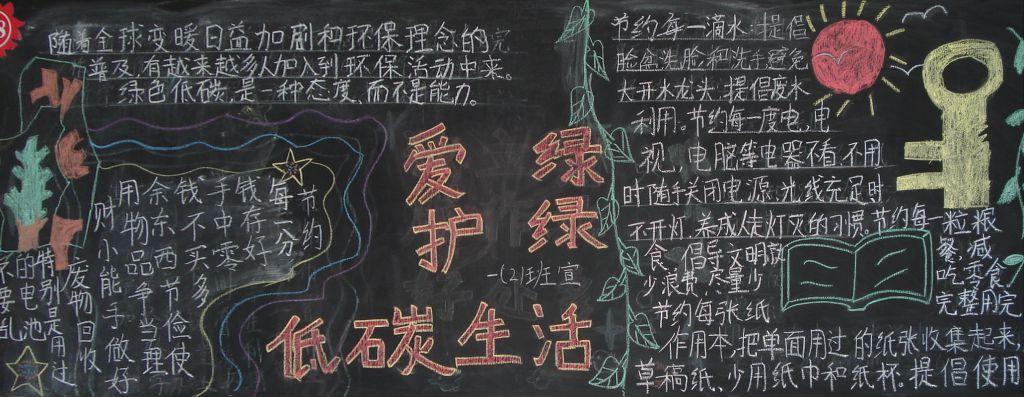 随着全球变暖日益加剧和环保理念的完
普及,有越来越多人加入到环保活动中来。
绿色低碳,是一种态度,而不是能力。
爱 绿
护 绿
一(2)班宣
低碳生活
节约每一分
钱存好
手中零
钱不买多
余东西节俭使
用物品争当理
财小能手做好
废物回收
特别是用过
的电池
不要乱
节约每一滴水,提倡
脸盆洗脸和洗手避免
大开水龙头,提倡废水
利用。节约每一度电,电
视,电脑等电器不看不用
时随手关闭电源,光线充足时
不开灯,养成走灯灭的习惯。节约每一粒粮
食,倡导文明放餐,减
少浪费,尽量少吃零食,
节约每张纸完整用完
作用本,把单面用过的纸张收集起来,
草稿纸、少用纸巾和纸杯。提倡使用